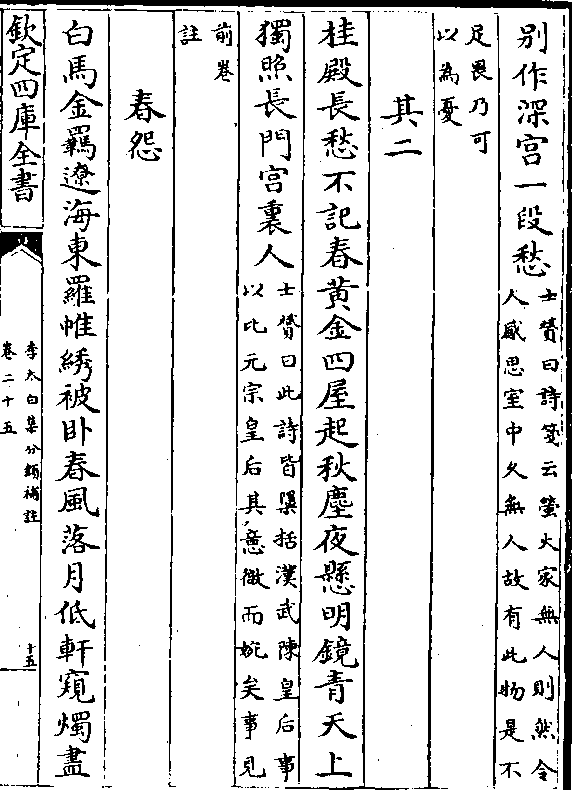 别作深宫一段愁士贇曰詩箋云螢火家無人則然令
人感思室中久無人故有此物是不
足畏乃可
以為憂
其二
桂殿長愁不記春黄金四屋起秋塵夜懸明鏡青天上
獨照長門宫裏人士贇曰此詩皆櫽括漢武陳皇后事
以比元宗皇后其意微而婉矣事見
前卷
註
春怨
白馬金羈遼海東羅帷綉被卧春風落月低軒窺燭盡
欽定四庫全書
李太白集分類補註
卷二十五
十五